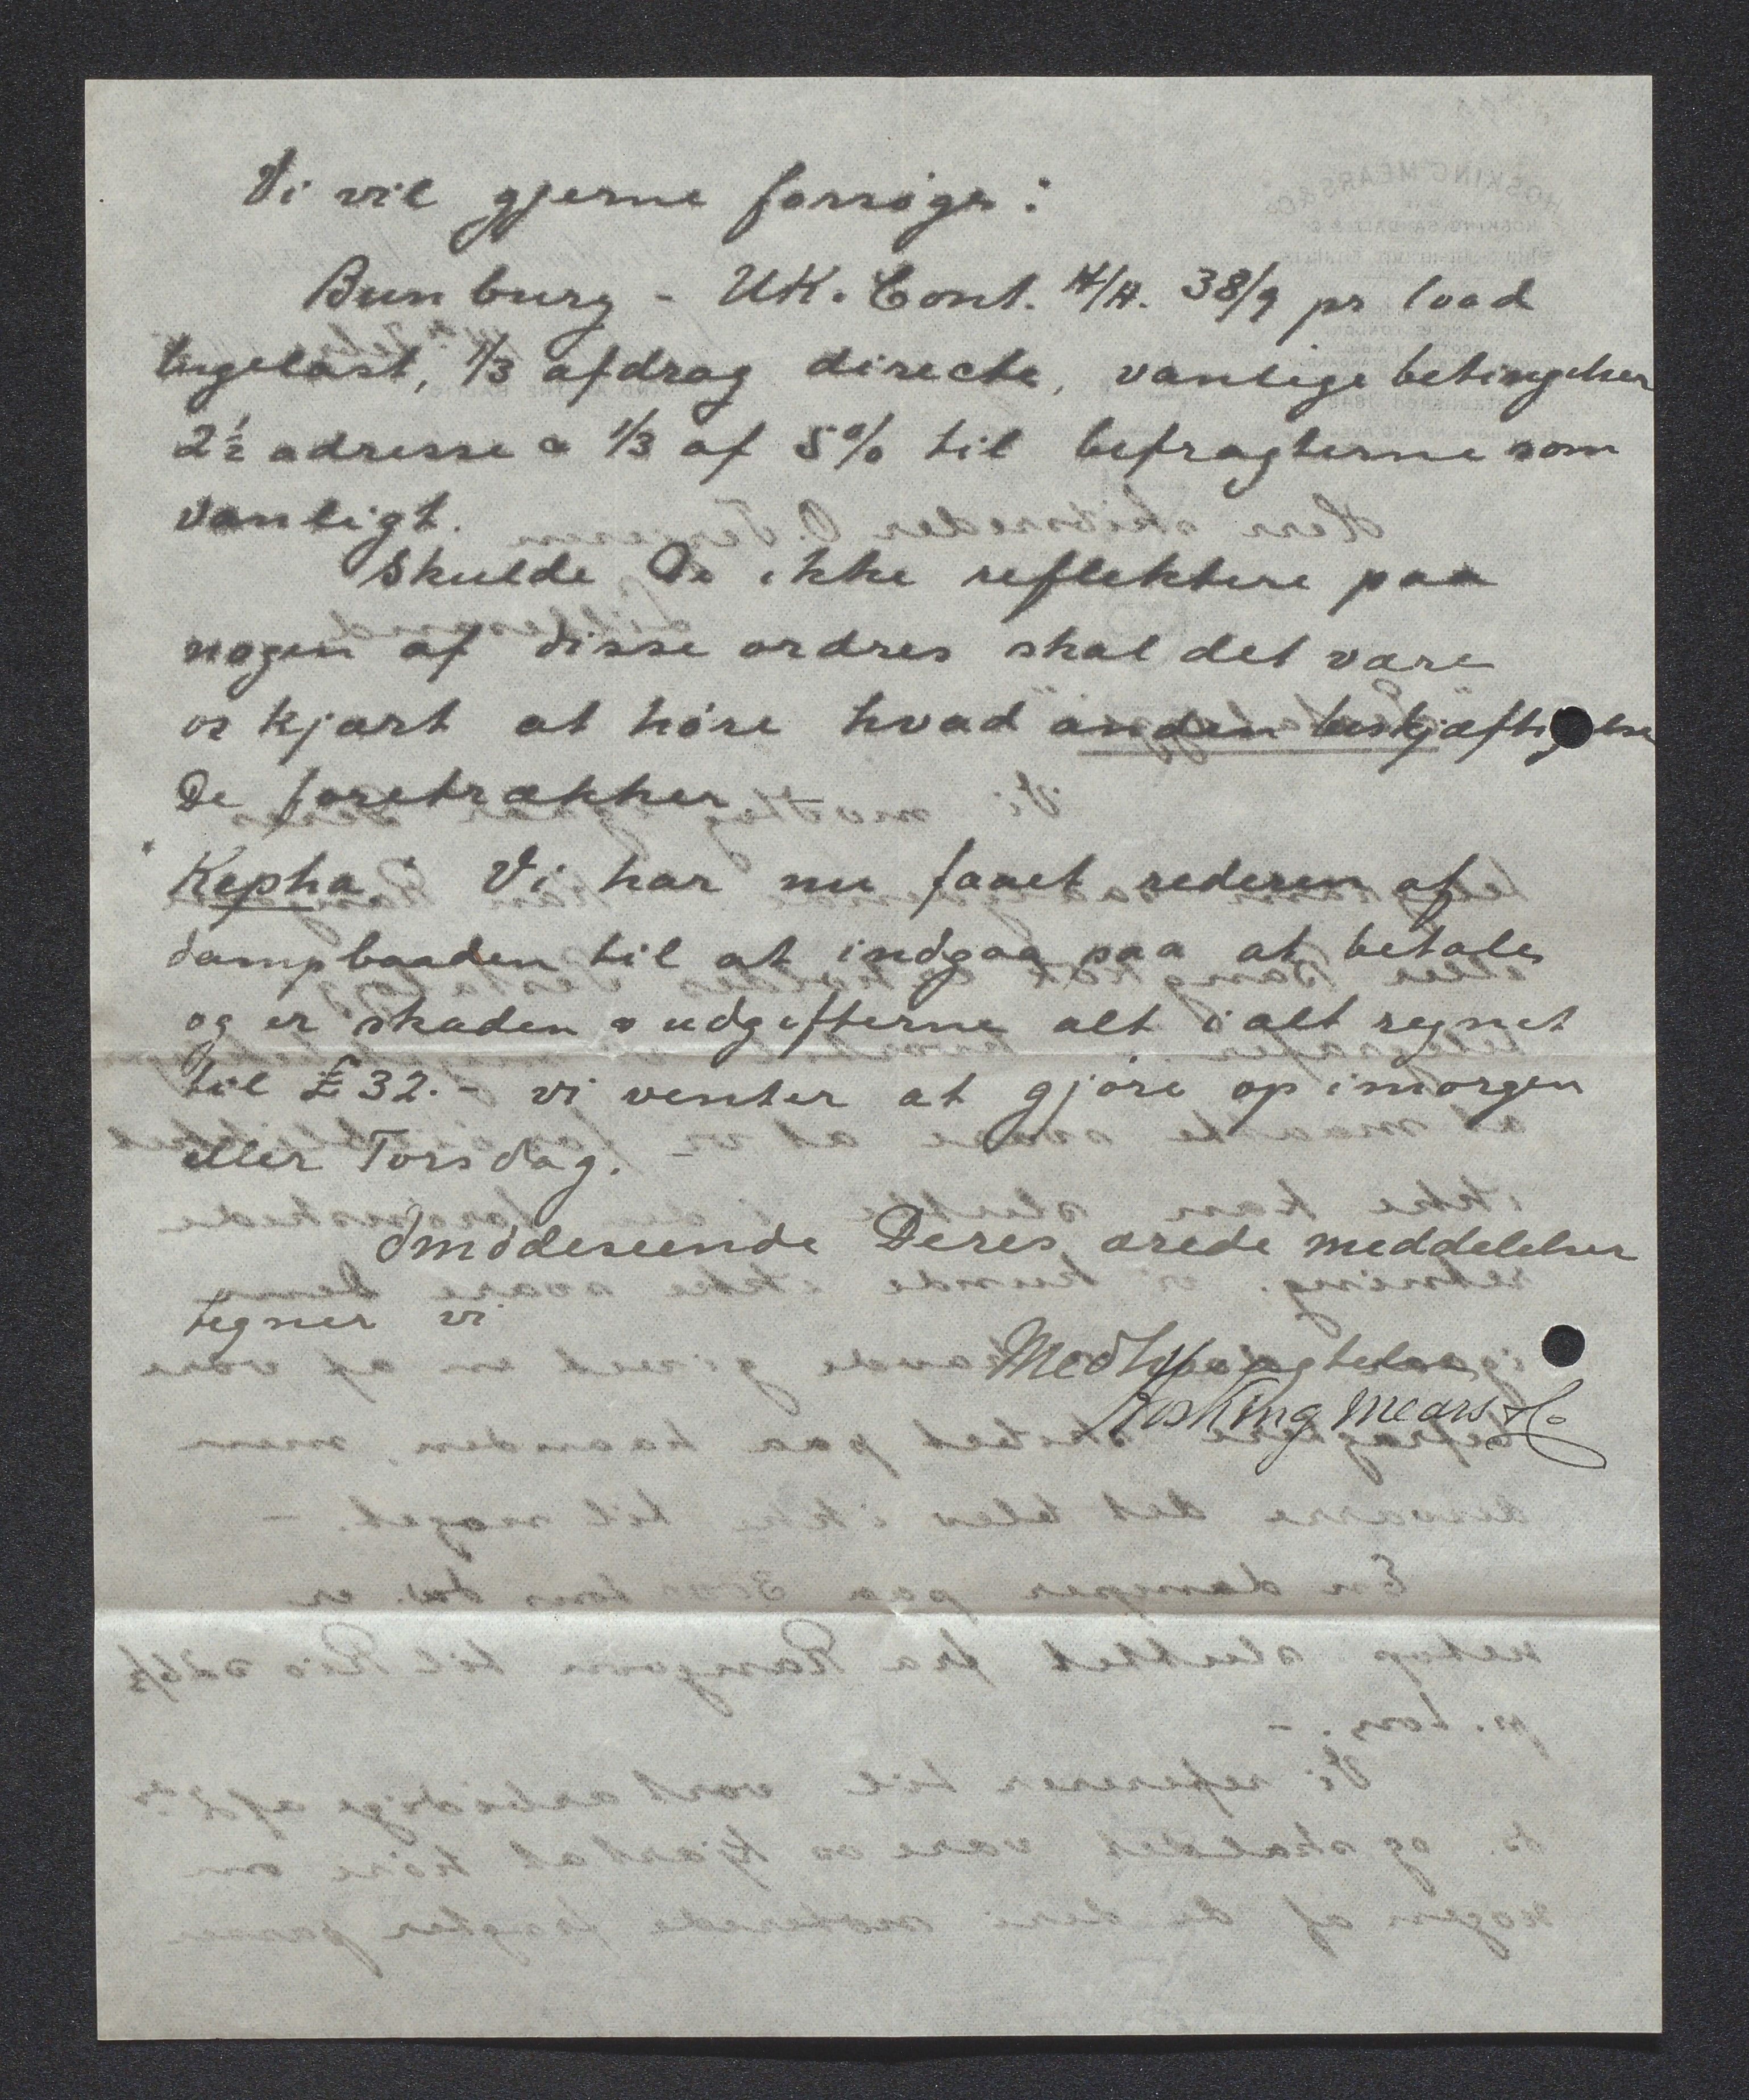 Vi vil gjerne forsøge:
Bunburg - UK. Cont. H/H. 38/9 pr load
tngelast, 1/3 afdrag directe, vanlige betingelser
2½ adresse & 1/3 af 5% til befragterne som
vanligt.
Skulde De ikke reflektere paa
nogen af disse ordres skal det være
os kjært at høre hvad anden beskjæftigelse
De foretrækker.
"Kepha" Vi har nu faaet rederen af
dampbaaden til at indgaa paa at betale
og er skaden & udgifterne alt i alt regnet
til £32.- vi venter at gjøre op imorgen
eller Torsdag. -
Imødeseende Deres ærede meddelelser
tegner vi
Med Høiagtelse
Hosking Mears & Co